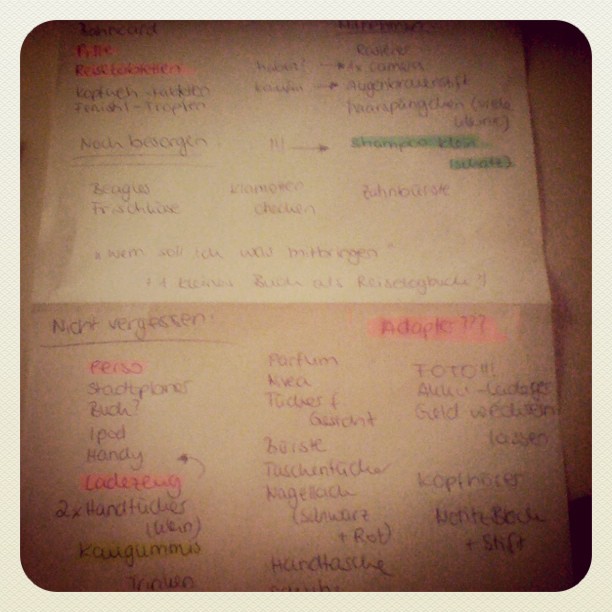 Bahncard
Pille
Reisetabletten
Kopfweh-tabletten
Fenistil-Tropfen
Rasierer
1x camera
augenbrauenstift
haarspängchen (viele
kleine)
Noch besorgen
!!! → Shampoo klein
(schatz)
Beagles
Frischkäse
Klamotten
checken
Zahnbürste
"wem soll ich was mitbringen"
+ kleines Buch als Reiselogbuch
Nicht vergessen:
Adapter???
Perso
Stadtpläne
Buch?
Ipod
Handy
Ladezeug
2x Handtücher
(klein)
Kaugummis
Trinken
Parfum
Nivea
Tücher f
Gesicht
Bürste
Taschentücher
Nagellack
(schwarz
+ Rot)
Handtasche
FOTO!!!
Akku-Ladegerät
Geld wechseln
lassen
Kopfhörer
Notiz Block
+ Stift